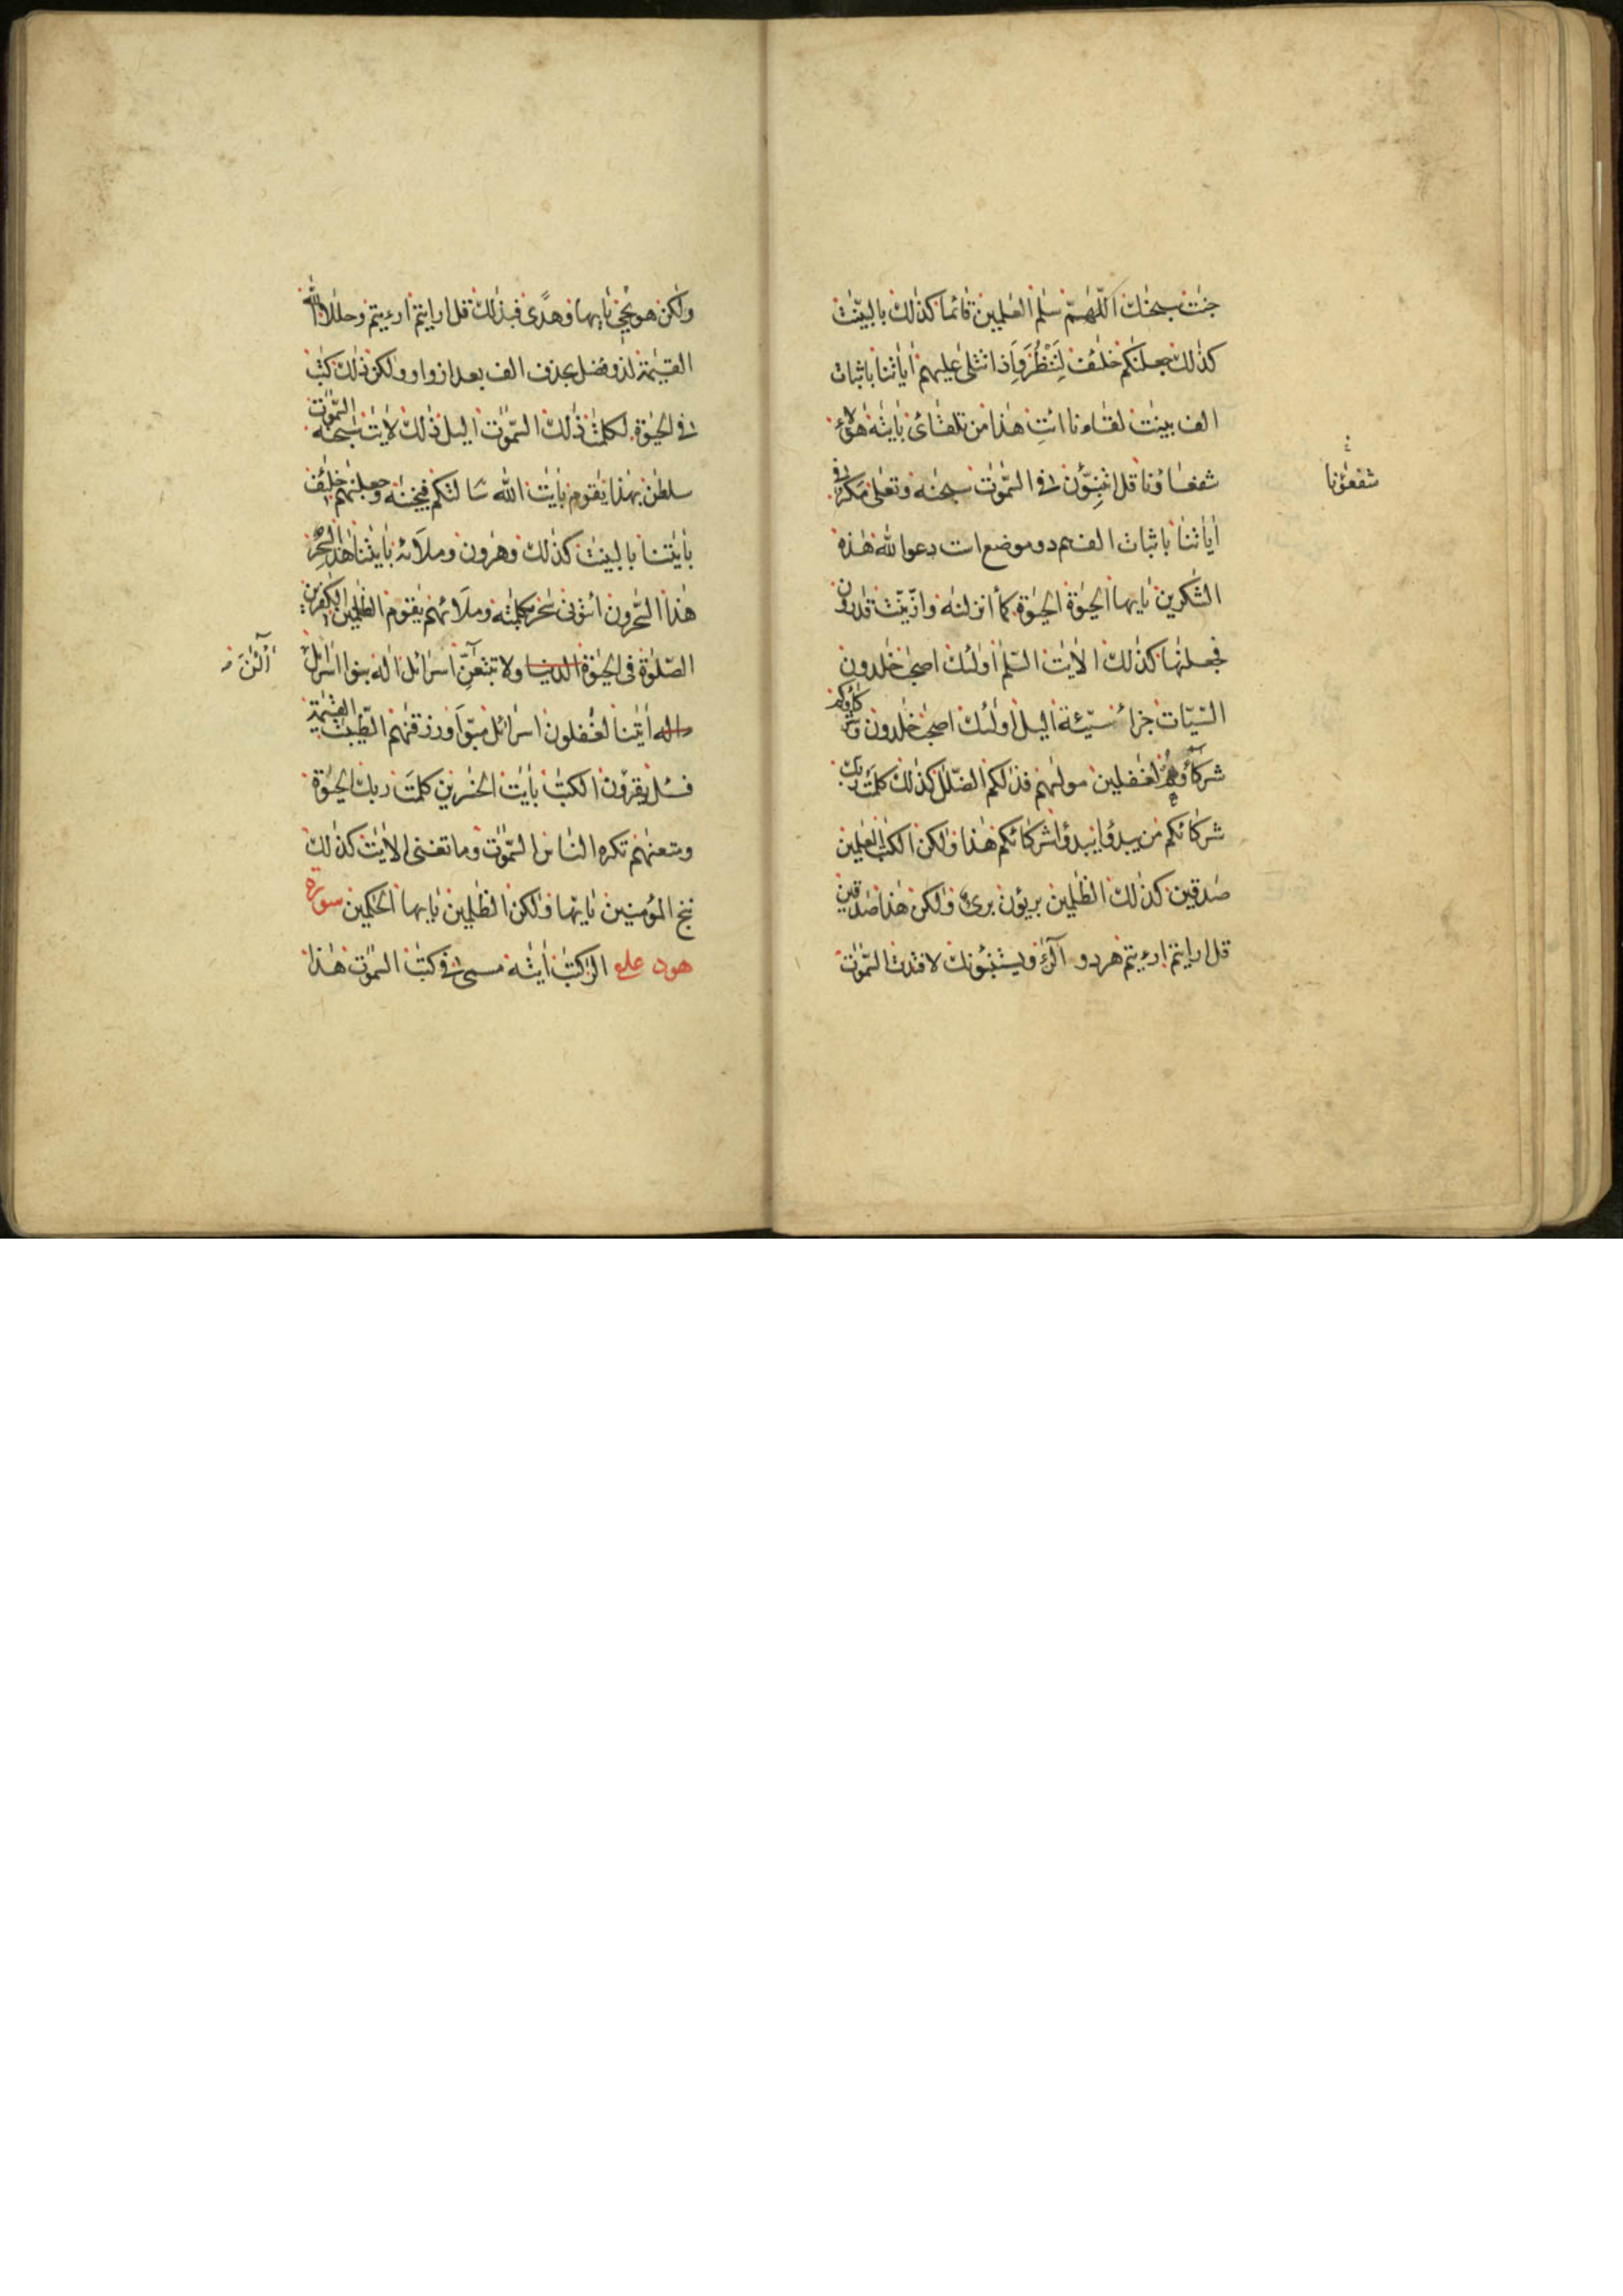 جنت سبحنك اللهم سلم العلمين قائما كذلك بالبينت
كذلك جعلنكم خلئف لننظر واذا تتلى عليهم اياتنا باثبات
الف بينت لقاءنا ائت هذا من تلقائ بايته هؤلا
شفعاؤنا قل اتنبؤن فى السموت سبحنه وتعلى مكر فى
شفعؤنا
اياتنا باثبات الف هم دو موضع است دعوا الله هذه
الشكرين يايها الحيوة الحيوة كما انزلنه وازينت قدرون
فجعلنها كذلك الايت السلم اولئك اصحب خلدون
السيات جزاء سيئة اليل اولئك اصحب خلدون
شركاؤهم لغفلين مولهم فذلكم الضلل كذلك كلمت ربك
شركائكم من يبدؤا يبدؤا شركائكم هذا ولكن الكتب العلمين
صدقين كذلك الظلمين بريؤن برى ولكن هذا صدقين
قل ارايتم ارءيتم هر دو ويستنبؤنك لافتدت السموت
ولكن هو يحى يايها وهدى فبذلك قل ارايتم ارءيتم وحللا
القيمة لذو فضل بحذف الف بعد از واو ولكن ذلك كتب
فى الحيوة لكلمت ذلك السموت اليل ذلك لايت سبحنه السموت
سلطن بهذا يقوم بايت الله سالتكم فنجينه وجعلنهم خلئف
بايتنا بالبينت كذلك وهرون وملائه بايتنا هذا السحر
هذا السحرون ائتونى سحر بكلمته وملائهم يقوم الظلمين الكفرين
الصلوة فى الحيوة الدنيا ولا تتبعن اسرائل اله بنوا اسرائل
آلئن
ايتنا لغفلون اسرائل مبوا ورزقنهم الطيبت القيمة
فسئل يقرؤن الكتب بايت الخسرين كلمت ربك الحيوة
ومتعنهم تكره الناس السموت وما تغنى الايت كذلك
ننج المؤمنين يايها ولكن الظلمين يايها الحكمين سورة
هود الر كتب ايته مسمى فى كتب السموت هذا